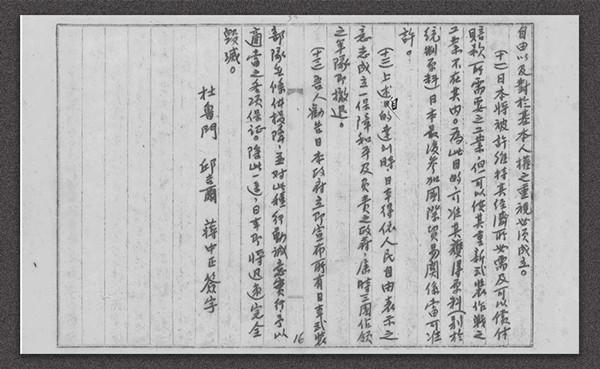 自由以及對於基本人權之重視必須成立。
(十一)日本將被許維持其經濟所必需及可以償付
賠款所需要之工業但可以使其重新武裝作戰之
工業不在其內。為此目的可准其獲得原料(別於
統制原料)日本最後參加國際貿易關係當可准
許。
(十二)上述目的達到時,日本得依人民自由表示之
意志成立一保障和平及負責之政府,屆時三國佔領
之軍隊即撤退。
(十三)吾人勸告日本政府立即宣布所有日本武裝
部隊無條件投降,並對此種行動誠意實行予以
適當之各項保証。除此一途,日本即將迅速完全
毀滅。
杜魯門 邱吉爾 蔣中正簽字
16